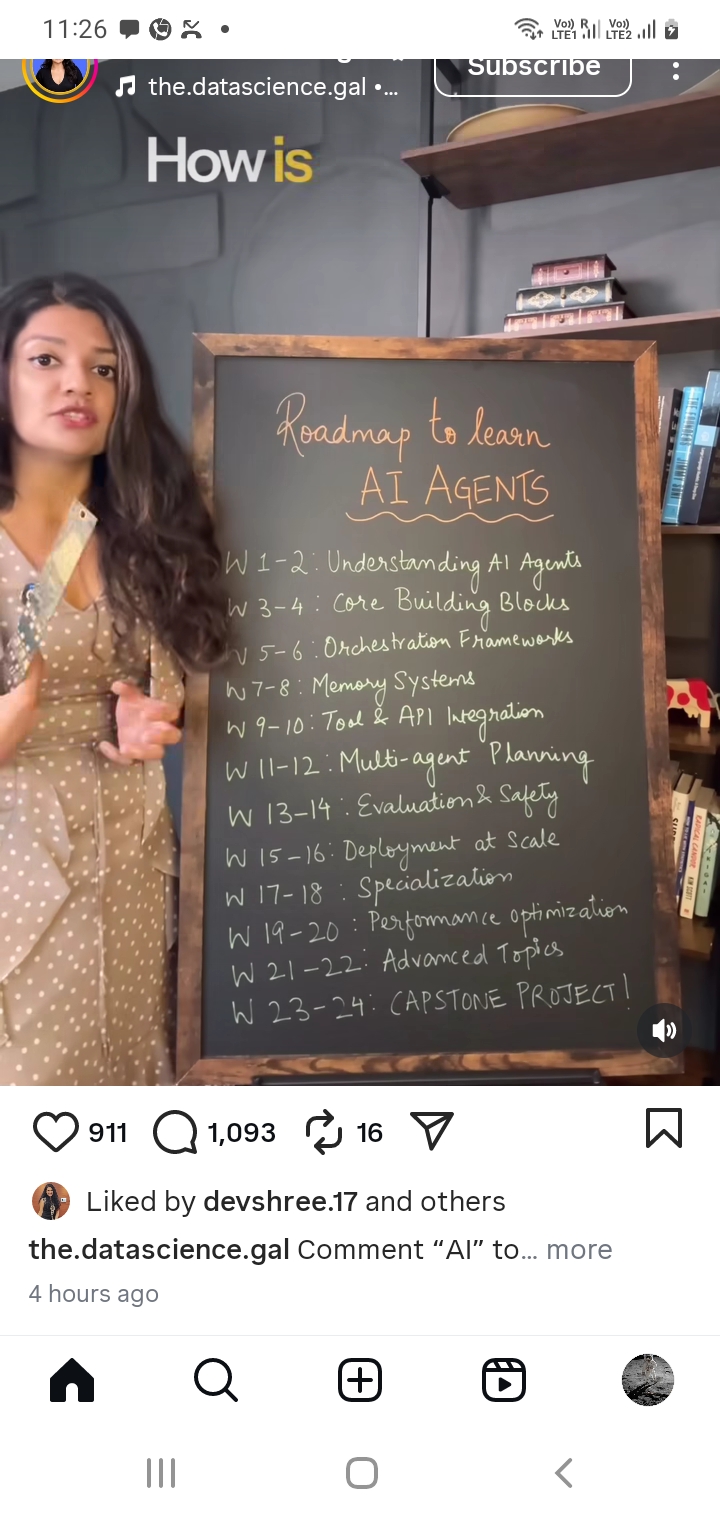 11:26
Vo)) R
LTE1
Vo))
LTE2
the.datascience.gal •...
Subscribe
How is
Roadmap to learn
AI AGENTS
W 1-2: Understanding AI Agents
W 3-4: Core Building Blocks
W 5-6: Orchestration Frameworks
W 7-8: Memory Systems
W 9-10: Tool & API Integration
W 11-12: Multi-agent Planning
W 13-14: Evaluation & Safety
W 15-16: Deployment at Scale
W 17-18: Specialization
W 19-20: Performance optimization
W 21-22: Advanced Topics
W 23-24: CAPSTONE PROJECT!
RADICAL CANDOR
IKIGAI
911
1,093
16
Liked by devshree.17 and others
the.datascience.gal Comment “AI” to... more
4 hours ago